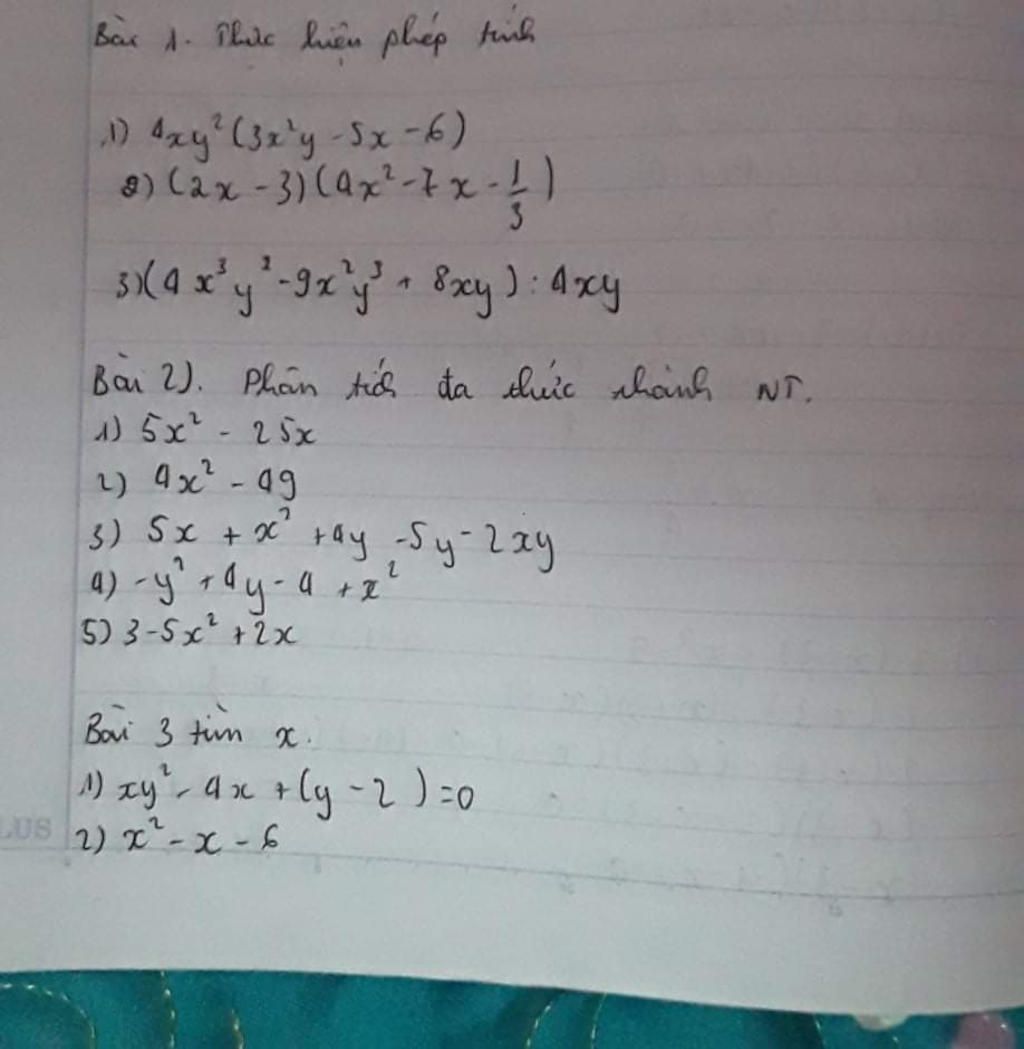 Bài 1. Thực hiện phép tính
1) 4xy²(3x²y - 5x - 6)
2) (2x - 3)(4x² - 7x - 1/3)
3) (4x³y² - 9x²y³ + 8xy) : 4xy
Bài 2). Phân tích đa thức thành NT.
1) 5x² - 25x
2) 4x² - 49
3) 5x + x² + 4y - 5y - 2xy
4) -y² + 4y - 4 + x²
5) 3 - 5x² + 2x
Bài 3 tìm x.
1) xy² - 4x + (y - 2) = 0
LUS
2) x² - x - 6